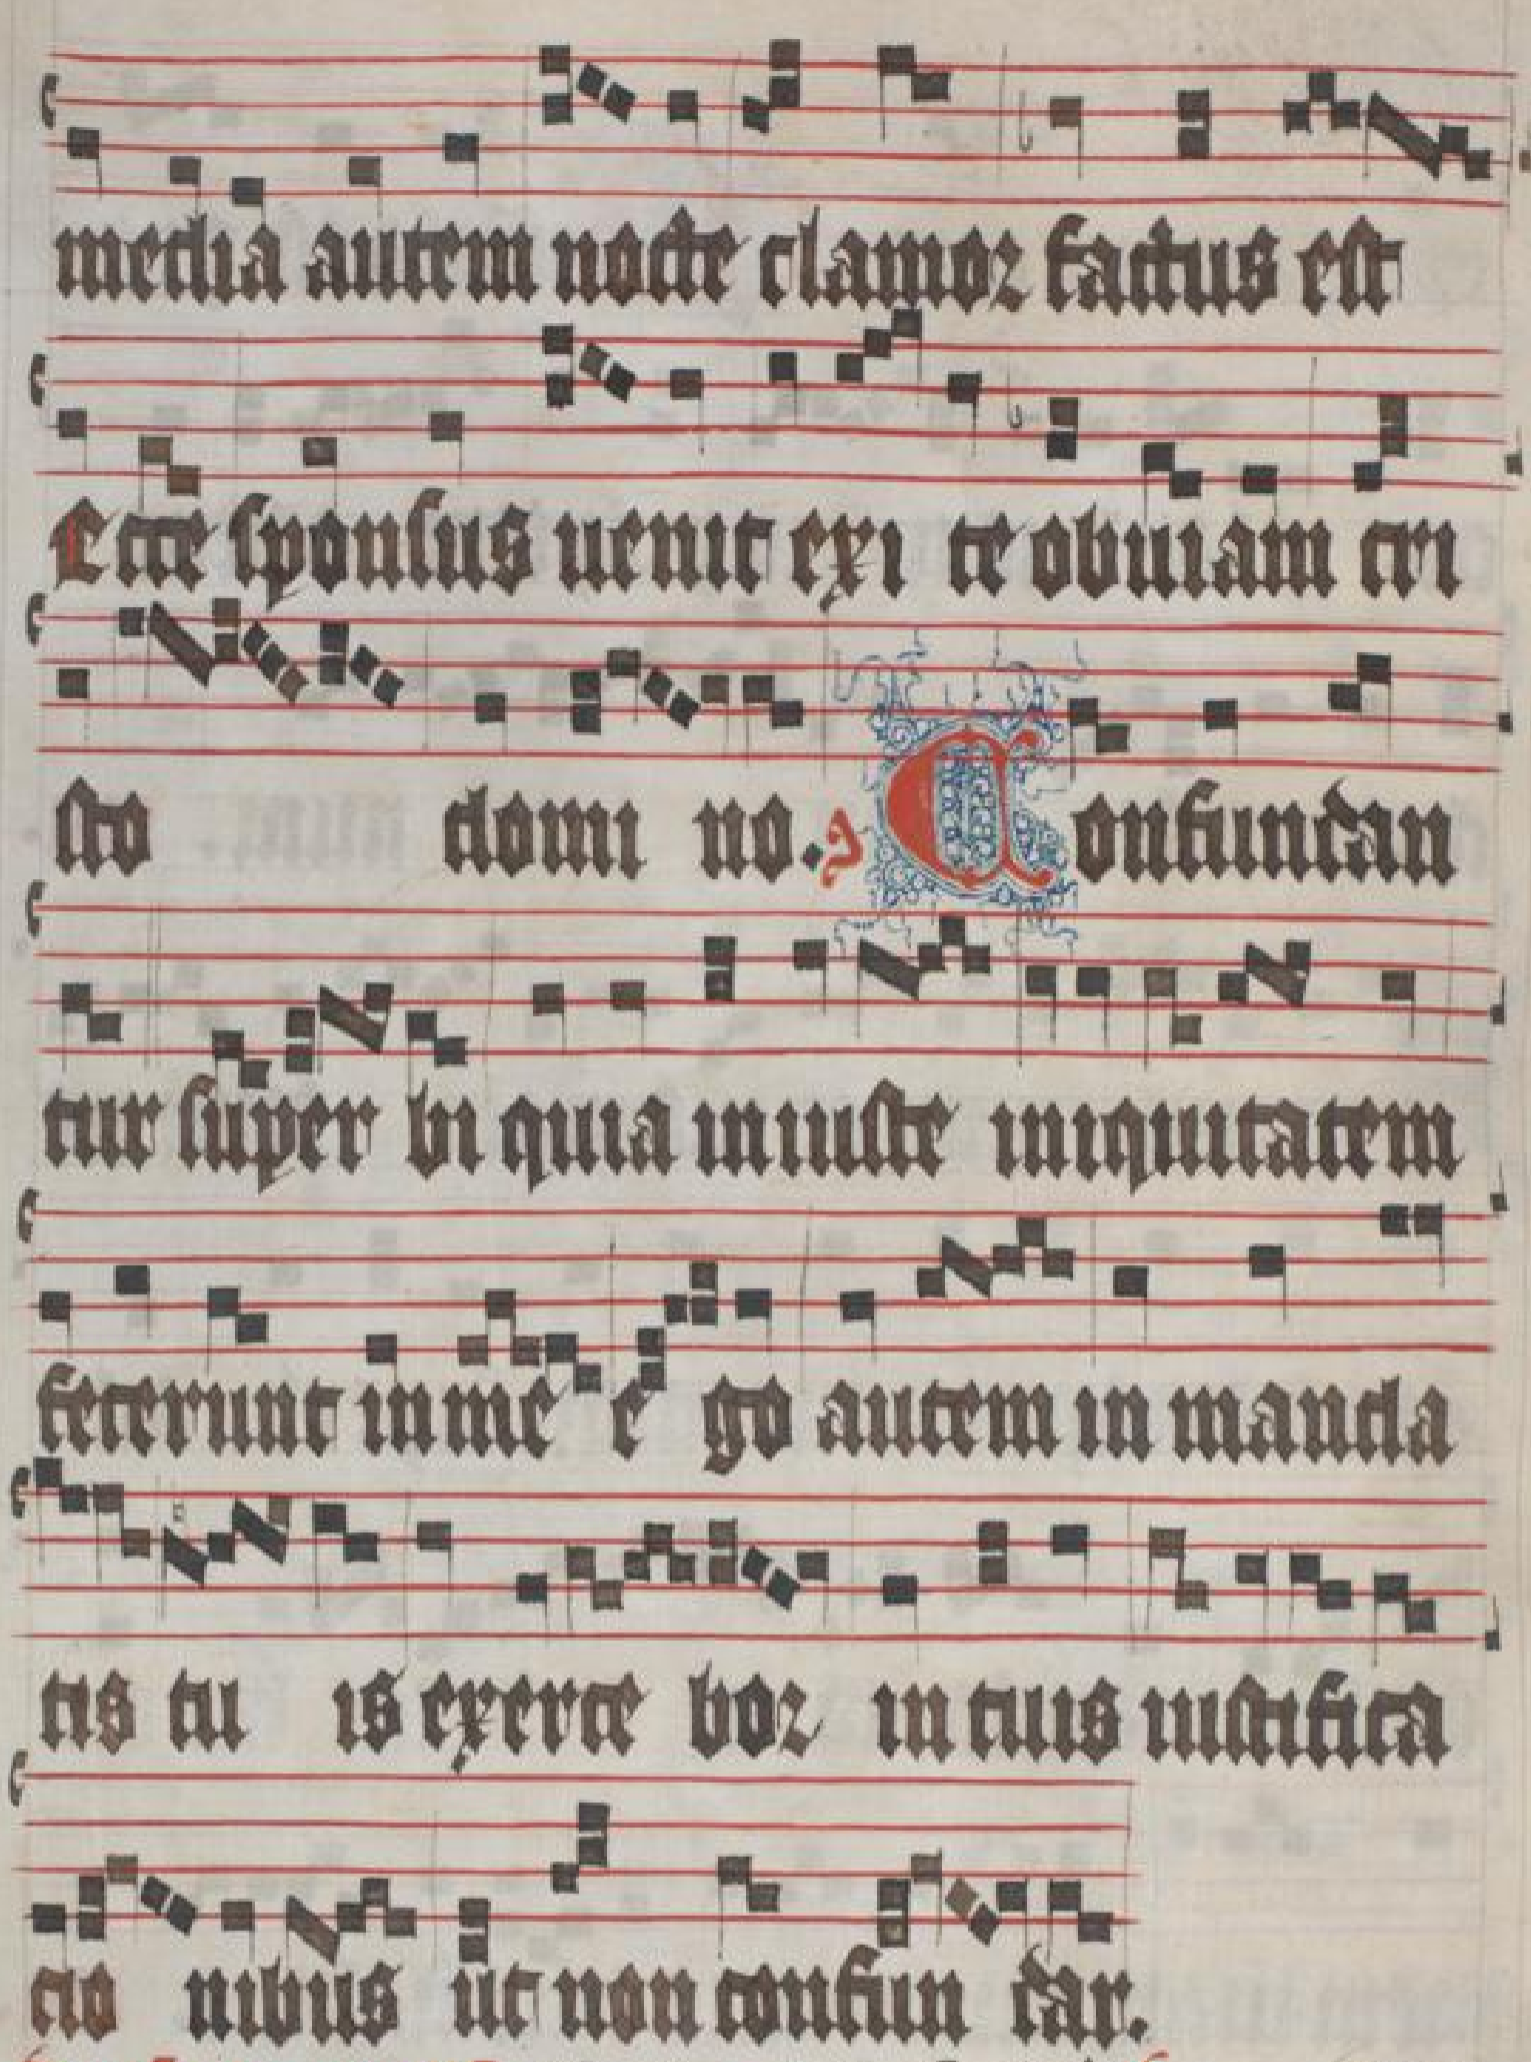 media autem nocte clamor factus est
Ecce sponsus uenit exi te obuiam cri
sto domi no. Confundan
tur super bi quia iniuste iniquitatem
fecerunt in me e go autem in manda
tis tu is exerce bor in tuis iustifica
cio nibus ut non confun dar.